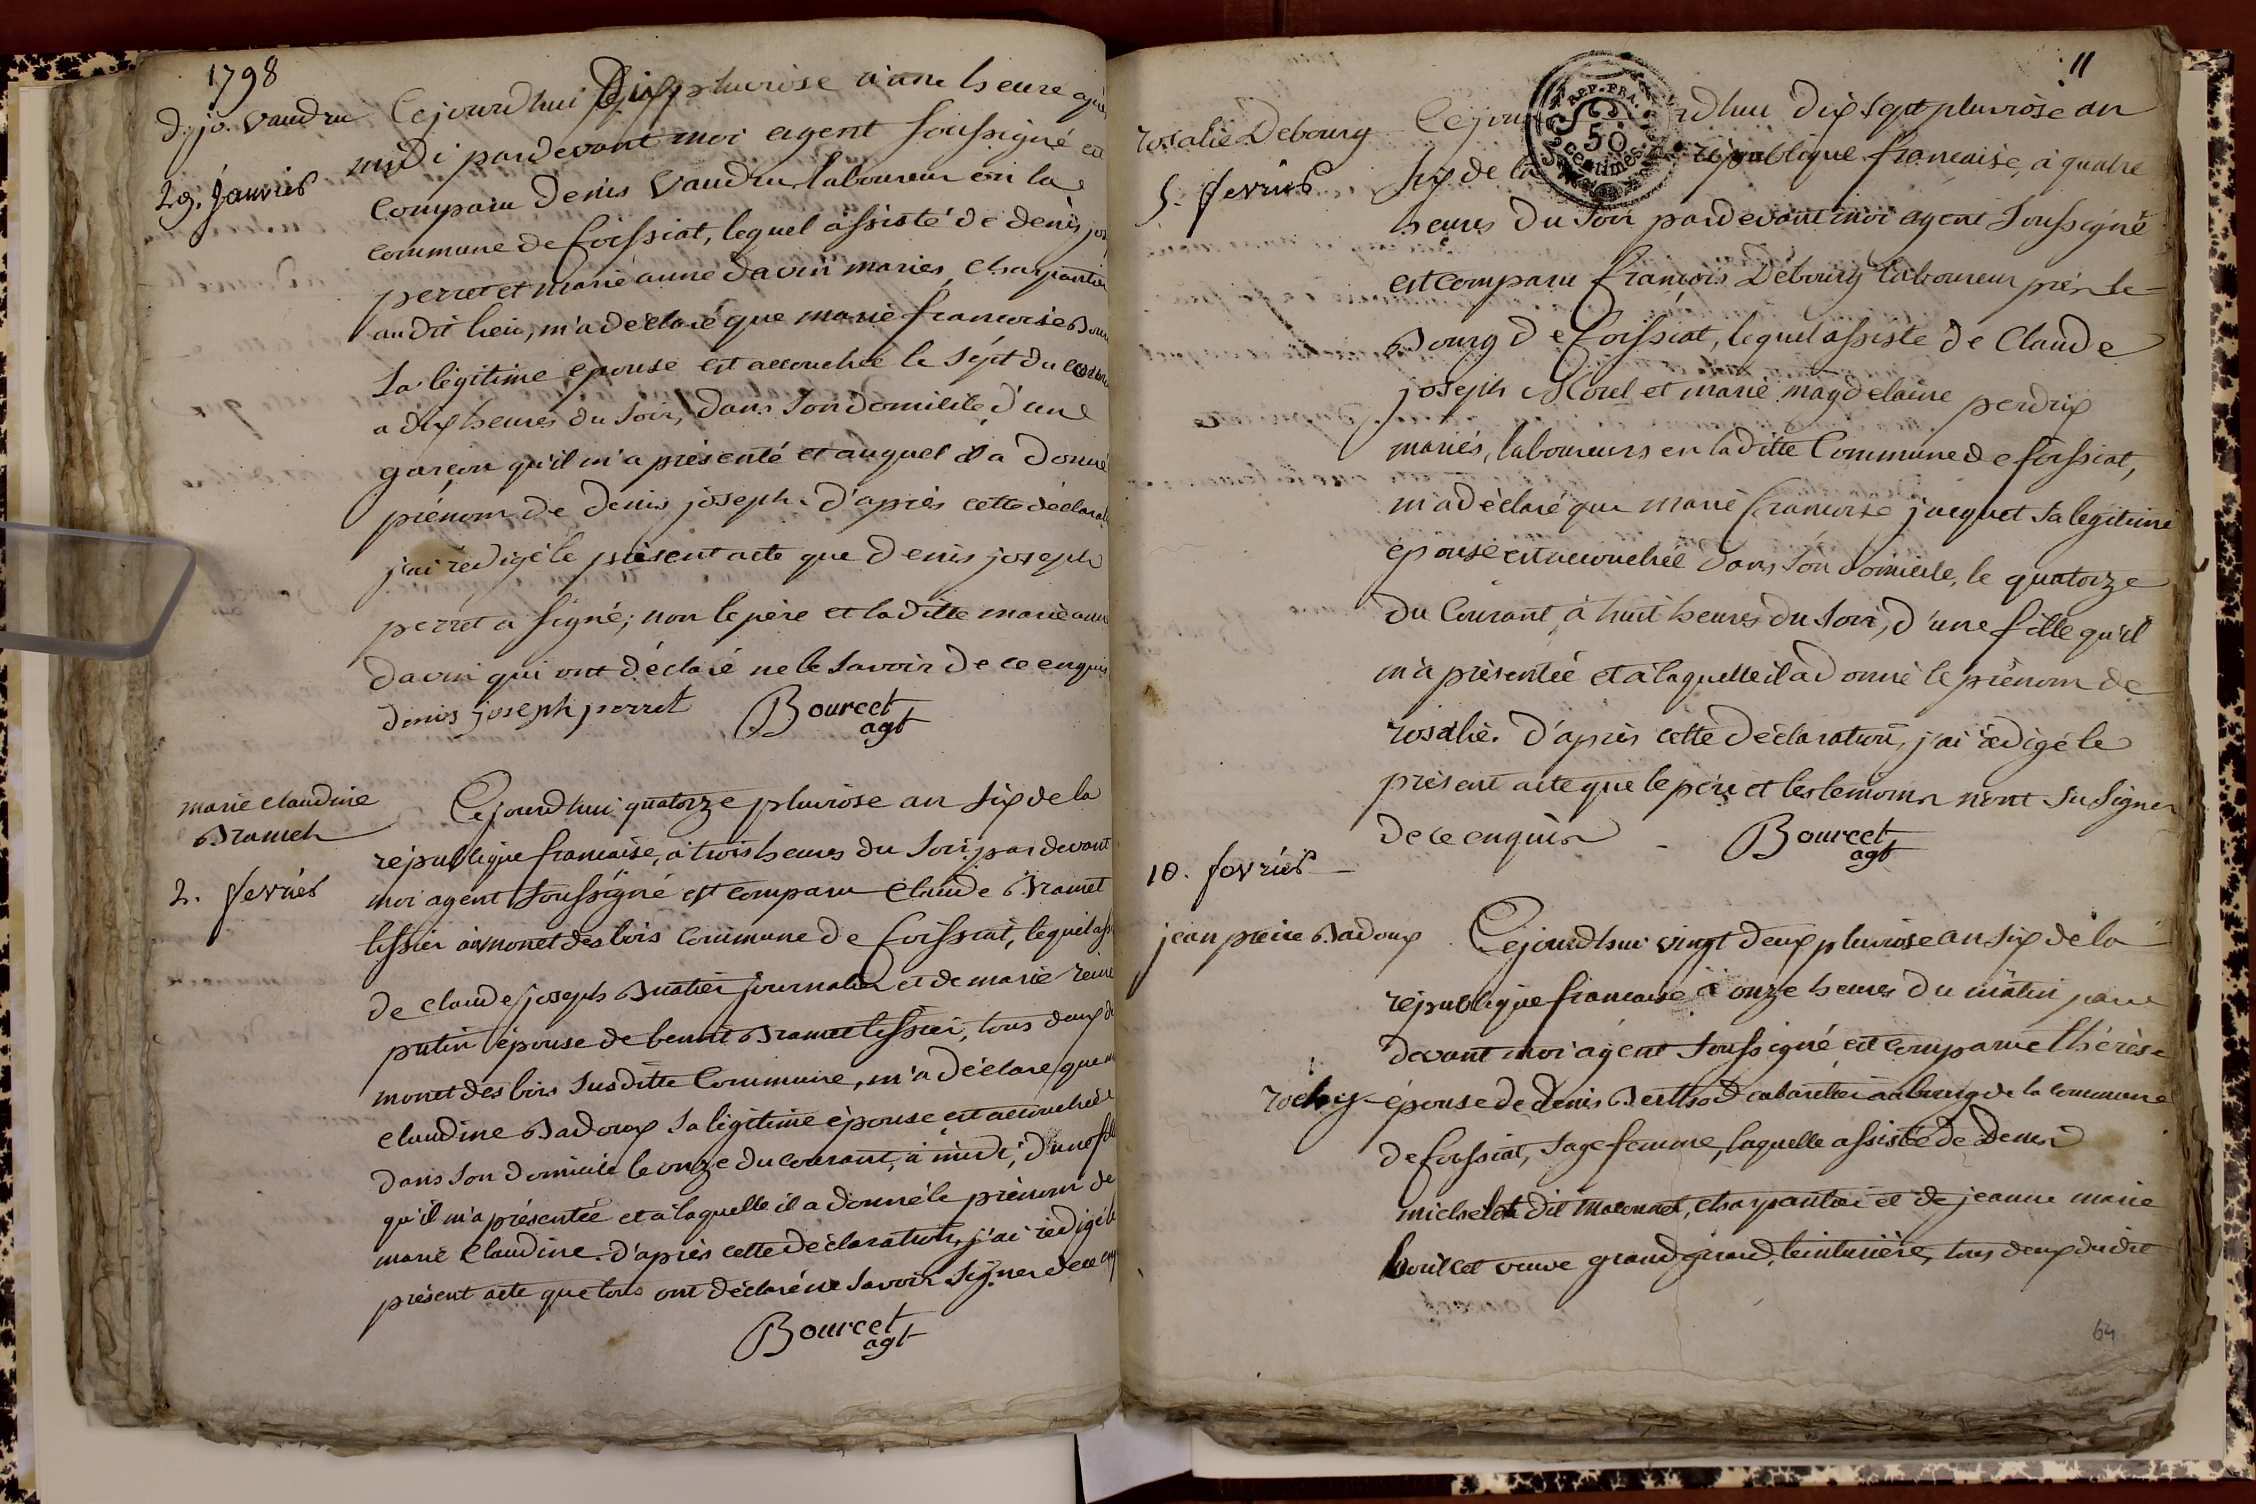 1798
d. jo. vaudru
29. janvier
Cejourdhui dix pluviose a une heure
midi pardevant moi agent soussigné est
comparu denis vaudru laboureur en la
commune de foissiat, lequel assisté de denis jos
perret et marie anne davin mariés, charpantier
audit lieu, m'a déclaré que marie francoise
sa légitime epouse est accouchée le sept du courant
a dix heures du soir, dans son domicile, d'un
garçon qu'il m'a présenté et auquel il a donné
prénom de denis joseph. d'après cette déclarati
j'ai rédigé le présent acte que denis joseph
perret a signé; non le père et laditte marie anne
davin qui ont déclaré ne le savoir de ce enquis
denis joseph perret Bourcet
agt
marie claudine
Bramet
2. fevrier
Cejourdhui quatorze pluviose an six de la
république francaise, à trois heures du soir, par devant
moi agent soussigné est comparu Claude Bramet
tissier à monet des bois commune de foissiat, lequel ass
de claude joseph Buatier journalier et de marie reine
putin épouse de benoit Bramet tissier, tous deux d
monet des bois susditte Commune, m'a déclaré que m
claudine Badoux sa légitime épouse est accouchée
dans son domicile le onze du courant, à midi, d'une fil
qu'il m'a présentée et à laquelle il a donné le prénom de
marie Claudine. d'après cette déclaration, j'ai rédigé le
présent acte que tous ont déclaré ne savoir signer de ce enq
Bourcet
agt
11
REP. FRA.
50
centimes
rosalie Debourg
5. fevrier
Cejourdhui dix sept pluviose an
six de la république francaise, à quatre
heures du soir pardevant moi agent soussigné
est comparu françois Debourg laboureur près le
Bourg de foissiat, lequel assisté de Claude
joseph Morel et marie magdelaine perdrix
mariés, laboureurs en laditte Commune de foissiat,
m'a déclaré que marie francoise jacquet sa légitime
épouse est accouchée dans son domicile, le quatorze
du Courant à huit heures du soir, d'une fille qu'il
m'a présentée et à laquelle il a donné le prénom de
rosalie. d'après cette déclaration, j'ai rédigé le
présent acte que le père et les temoins n'ont su signer
de ce enquis Bourcet
agt
10. fevrier
jean pierre Badoux
Cejourdhui vingt deux pluviose an six de la
république francaise à onze heures du matin par
devant moi agent soussigné est comparue thérèse
rochy épouse de denis Berthod cabaretier au bourg de la commune
de foissiat, sage femme, laquelle assistée de denis
michelet dit maconnet, charpantier et de jeanne marie
bourcet veuve grand girard, teinturière, tous deux dudit
64